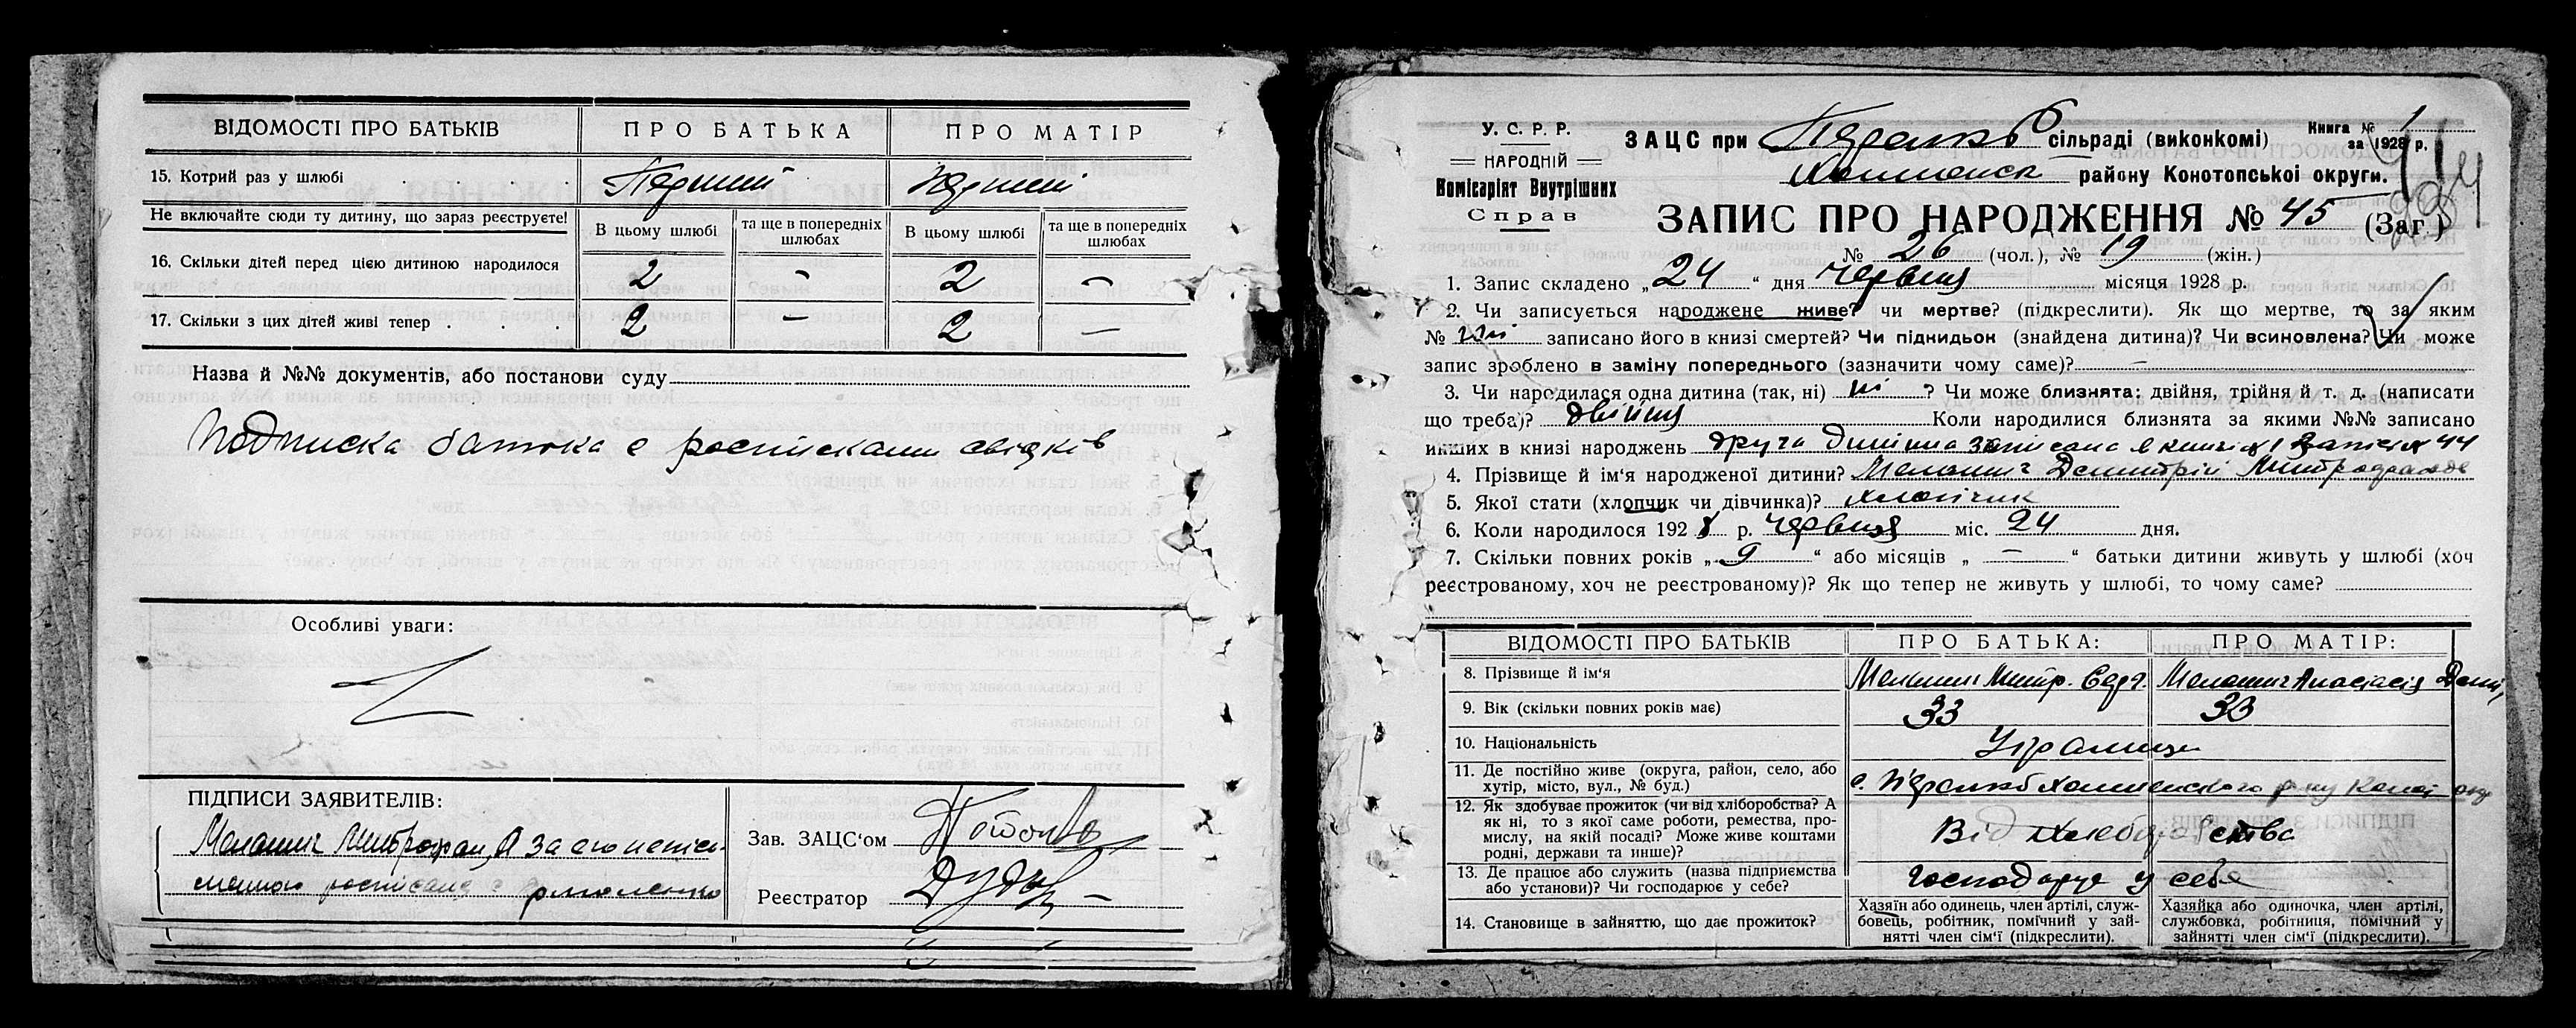 ВІДОМОСТІ ПРО БАТЬКІВ ПРО БАТЬКА ПРО МАТІР
15. Котрий раз у шлюбі Перший Перший
Не включайте сюди ту дитину, що зараз реєструєте! В цьому шлюбі та ще в попередніх шлюбах В цьому шлюбі та ще в попередніх шлюбах
16. Скільки дітей перед цією дитиною народилося 2 – 2 –
17. Скільки з цих дітей живі тепер . . . 2 – 2 –
Назва й №№ документів, або постанови суду
Подписка батька с росписками свідків
Особливі уваги:
ПІДПИСИ ЗАЯВИТЕЛІВ:
Митрофан, А за его
Зав. ЗАЦС'ом
Реєстратор
У. С. Р. Р.
НАРОДНІЙ
Комісаріят Внутрішних
Справ
ЗАЦС при сільраді (виконкомі)
району Конотопської округи.
Книга № 1
за 1928 р.
ЗАПИС ПРО НАРОДЖЕННЯ № 45 (Заг.)
№ 26 (чол.), № 19 (жін.)
1. Запис складено „24“ дня червня місяця 1928 р.
2. Чи записується народжене живе? чи мертве? (підкреслити). Як що мертве, то за яким
№ записано його в книзі смертей? Чи підкидьок (знайдена дитина)? Чи всиновлена? Чи може
запис зроблено в заміну попереднього (зазначити чому саме)? –
3. Чи народилася одна дитина (так, ні) ні ? Чи може близнята: двійня, трійня й т. д. (написати
що треба)? двійня Коли народилися близнята за якими №№ записано
инших в книзі народжень друга дитина записана в книги № 1 запись № 44
4. Прізвище й ім'я народженої дитини? Меланич Демитрій
5. Якої стати (хлопчик чи дівчинка)? хлопчик
6. Коли народилося 1928 р. червня міс. 24 дня.
7. Скільки повних років „9“ або місяців „–“ батьки дитини живуть у шлюбі (хоч
реєстрованому, хоч не реєстрованому)? Як що тепер не живуть у шлюбі, то чому саме?
ВІДОМОСТІ ПРО БАТЬКІВ ПРО БАТЬКА: ПРО МАТІР:
8. Прізвище й ім'я Меланич Митр. Серг. Меланич Анастасія
9. Вік (скільки повних років має) 33 33
10. Національність Українці
11. Де постійно живе (округа, район, село, або
хутір, місто, вул., № буд.) с.
12. Як здобуває прожиток (чи від хліборобства? А
як ні, то з якої саме роботи, ремества, про-
мислу, на якій посаді? Може живе коштами
родні, держави та инше)? Від
13. Де працює або служить (назва підприємства
або установи)? Чи господарює у себе? господарює у себе
14. Становище в зайняттю, що дає прожиток?
Хазяїн або одинець, член артілі, служ-
бовець, робітник, помічний у зай-
нятті член сім'ї (підкреслити).
Хазяйка або одиночка, член артілі,
службовка, робітниця, помічний у
зайнятті член сім'ї (підкреслити).